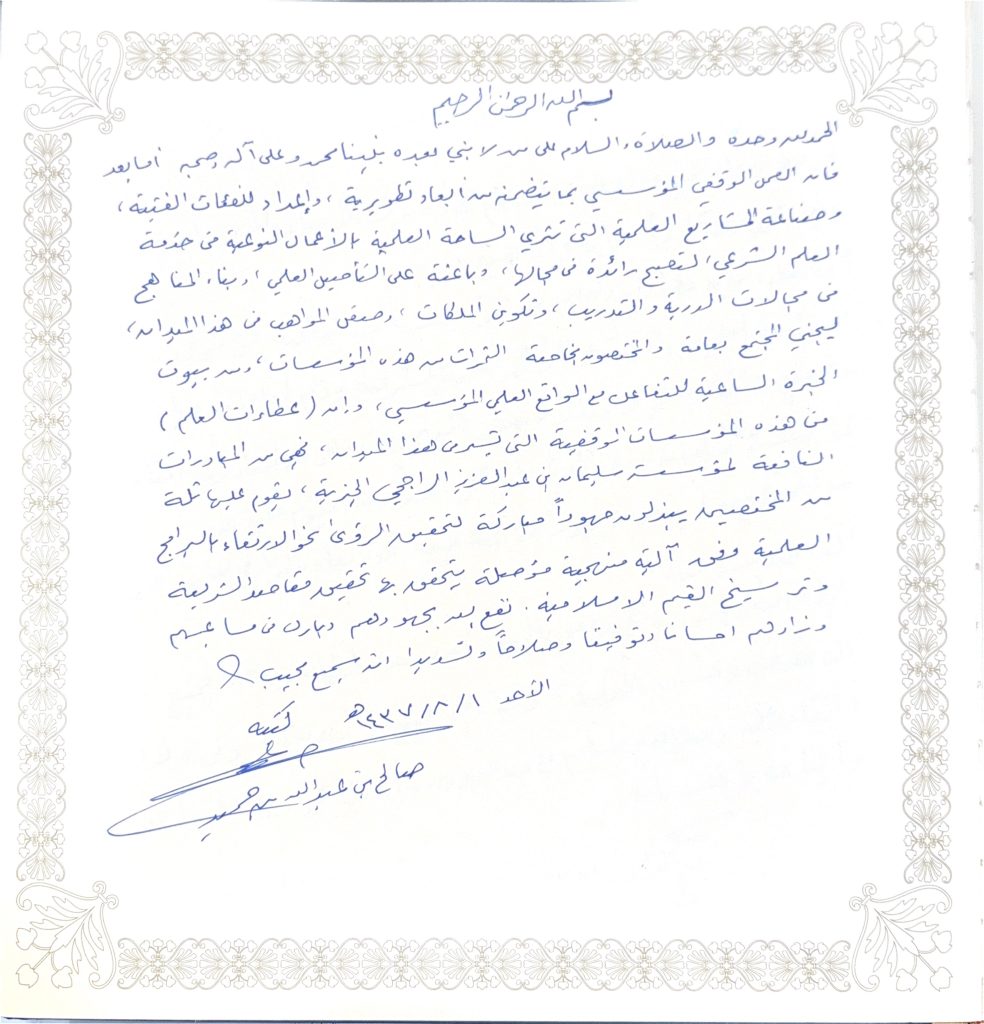 بسم الله الرحمن الرحيم
الحمد لله وحده والصلاة والسلام على من لا نبي بعده نبينا محمد وعلى آله وصحبه أما بعد
فإن العمل الوقفي المؤسسي بما يتضمنه من أبعاد تطويرية ، وإمداد للطاقات الفتية ،
وصناعة المشاريع العلمية التي تثري الساحة العلمية بالأعمال النوعية في خدمة
العلم الشرعي ، لتصبح رائدة في مجالها ، وباعثة على التأصيل العلمي ، وبناء المناهج
في مجالات الدربة والتدريب ، وتكوين الملكات ، وصقل المواهب في هذا الميدان ،
ليجني المجتمع بعامة والمختصون بخاصة الثمرات من هذه المؤسسات ، ومن بيوت
الخبرة الساعية للتفاعل مع الواقع العلمي المؤسسي ، وإن ( عطاءات العلم )
من هذه المؤسسات الوقفية التي تسير في هذا الميدان ، فهي من المبادرات
النافعة لمؤسسة سليمان بن عبدالعزيز الراجحي الخيرية ، يقوم عليها ثلة
من المختصين يبذلون جهوداً مباركة لتحقيق الرؤى نحو الارتقاء بالبرامج
العلمية وفق آلية منهجية مؤصلة يتحقق بها تحقيق مقاصد الشريعة
وترسيخ القيم الإسلامية . نفع الله بجهودهم وبارك في مساعيهم
وزادهم احساناً وتوفيقاً وصلاحاً وتسديداً انه سميع مجيب
الأحد ١/٨/١٤٣٧هـ
كتبه
صالح بن عبدالله بن حميد